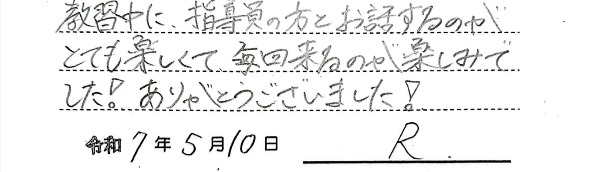 教習中に、指導員の方とお話するのが
とても楽しくて、毎回来るのが楽しみで
した！ありがとうございました！
令和7年5月10日 R.